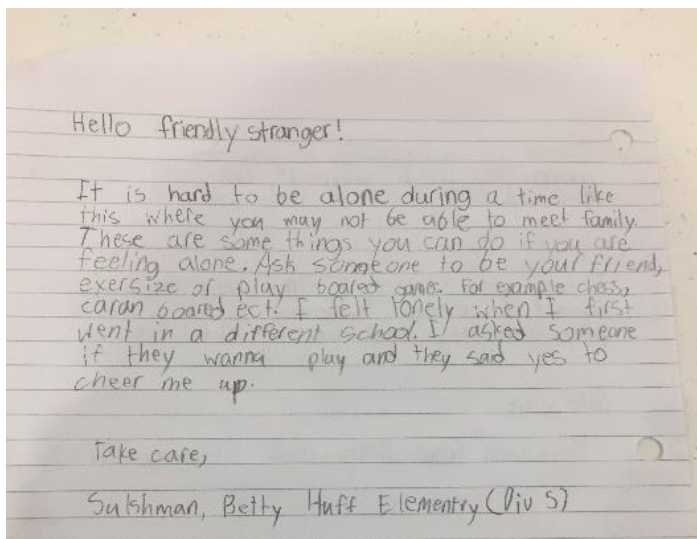 Hello friendly stranger!
It is hard to be alone during a time like
this where you may not be able to meet family.
These are some things you can do if you are
feeling alone. Ask someone to be your friend,
exersize or play boared games. for example chess,
caran boared ect. I felt lonely when I first
went in a different school. I asked someone
if they wanna play and they said yes to
cheer me up.
Take care,
Sukhman, Betty Huff Elementry (Div 5)